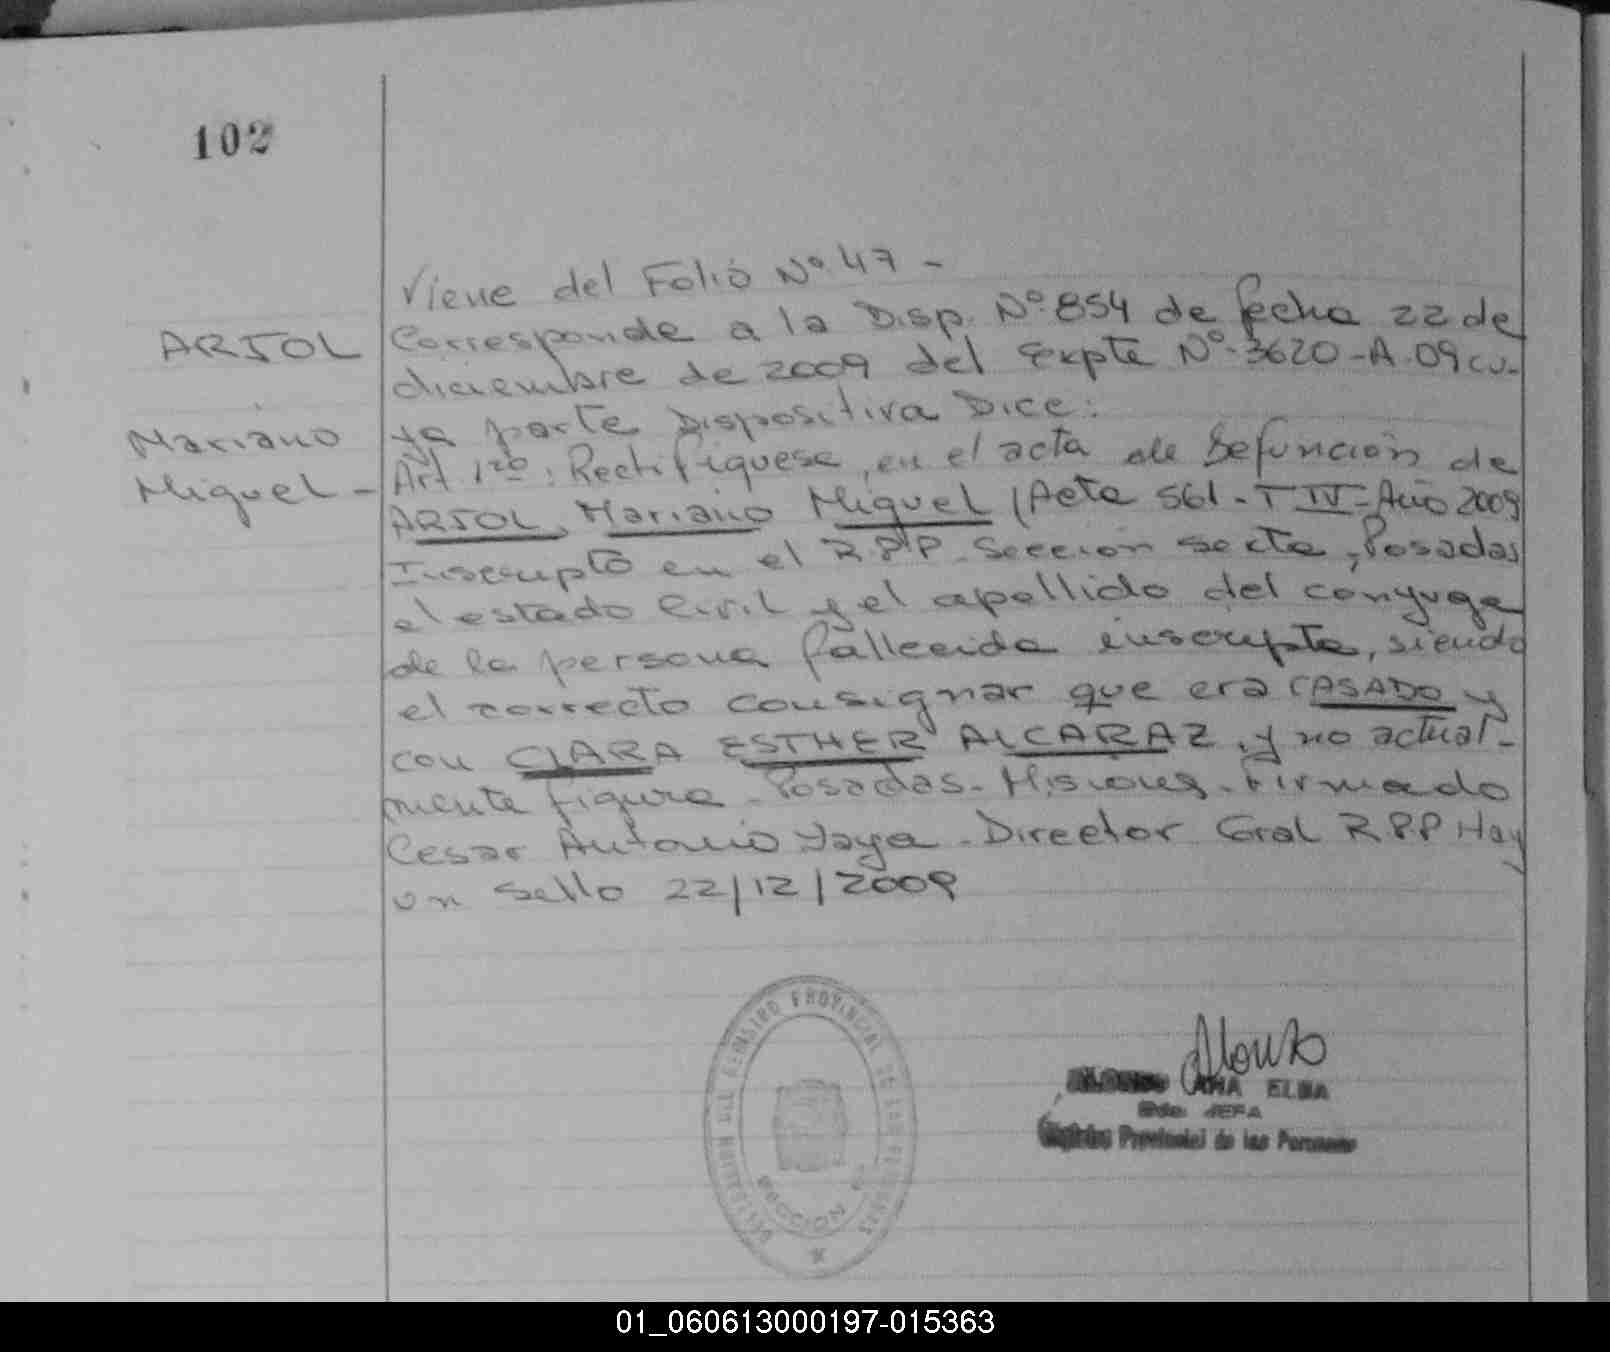 102
Viene del Folio Nº 47 -
ARJOL
Corresponde a la Disp. Nº 854 de fecha 22 de
diciembre de 2009 del Expte Nº 3620-A-09 cu-
Mariano
Miguel -
ya parte Dispositiva Dice:
Art. 1ro: Rectifíquese, en el acta de Defunción de
ARJOL, Mariano Miguel (Acta 561 - T IV - Año 2009
Inscripto en el R.P.P. Sección sexta, Posadas
el estado Civil y el apellido del conyuge
de la persona fallecida inscripta, siendo
el correcto consignar que era CASADO y
con CLARA ESTHER ALCARAZ, y no actual-
mente figura - Posadas - Misiones - Firmado
Cesar Antonio Yaya - Director Gral R.P.P Hay
un Sello 22/12/2009
DELEGACION DEL REGISTRO PROVINCIAL DE LAS PERSONAS
SECCION
Alonzo
ANA ELBA
JEFA
Provincial de las Personas
01_060613000197-015363